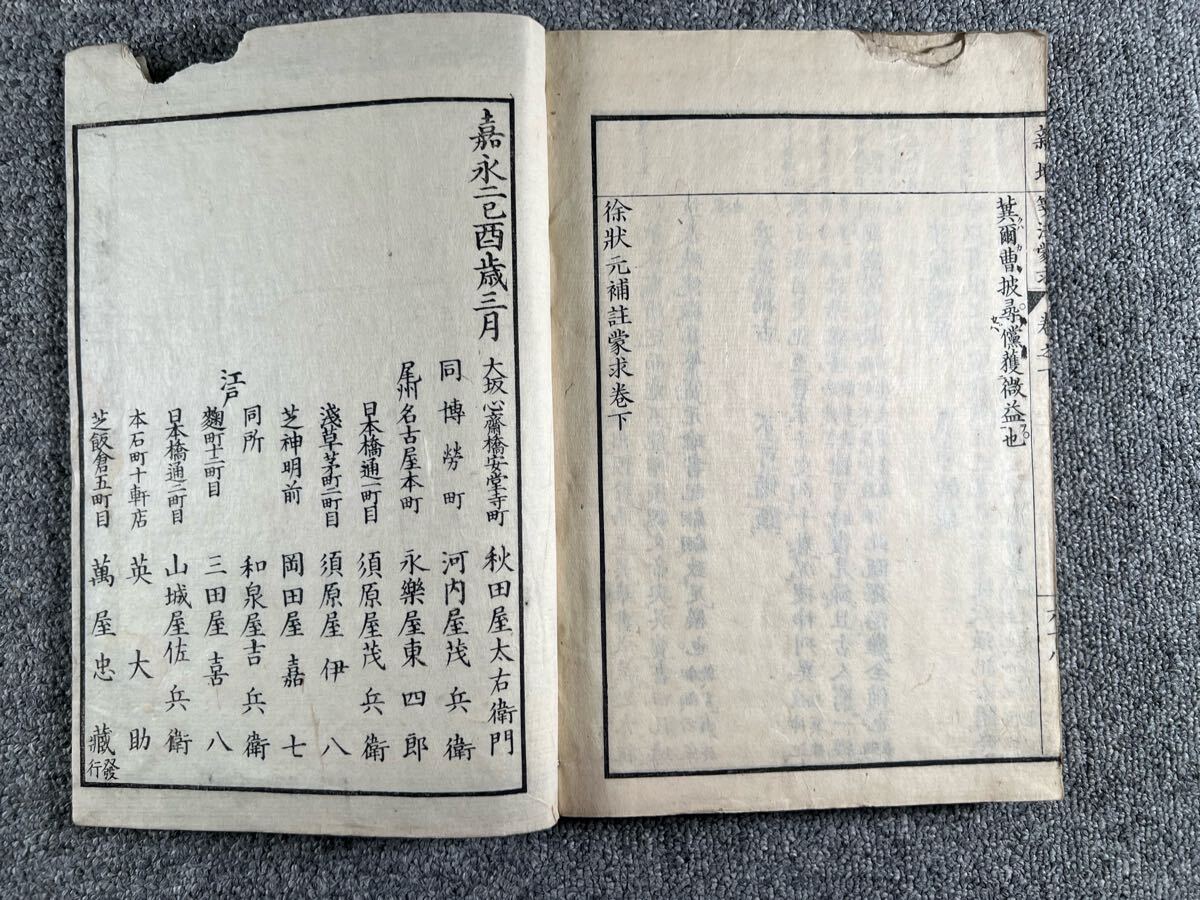 冀爾曹披尋儻獲微益也
徐狀元補註蒙求卷下
嘉永二己酉歳三月
大坂心齋橋安堂寺町 秋田屋太右衛門
同博勞町 河内屋茂兵衛
尾州名古屋本町 永樂屋東四郎
江戸
日本橋通一町目 須原屋茂兵衛
淺草茅町二町目 須原屋伊八
芝神明前 岡田屋嘉七
同所 和泉屋吉兵衛
麴町十二町目 三田屋喜八
日本橋通二町目 山城屋佐兵衛
本石町十軒店 英大助
芝飯倉五町目 萬屋忠藏
發行